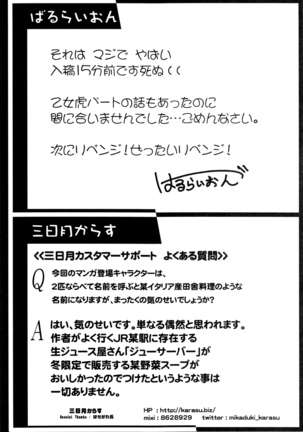 ばるらいおん
それは マジで やばい
入稿15分前です死ぬ((
乙女虎パートの話もあったのに
間に合いませんでした…ごめんなさい。
次にリベンジ!ぜったいリベンジ!
ばるらいおん
三日月からす
≪三日月カスタマーサポート よくある質問≫
Q 今回のマンガ登場キャラクターは、
2匹ならべて名前を呼ぶと某イタリア産田舎料理のような
名前になりますが、まったくの気のせいでしょうか?
A はい、気のせいです。単なる偶然と思われます。
作者がよく行くJR某駅に存在する
生ジュース屋さん「ジューサーバー」が
冬限定で販売する某野菜スープが
おいしかったのでつけたというような事は
一切ありません。
三日月からす
HP : http://karasu.biz/
mixi : 8628929 twitter : mikaduki_karasu